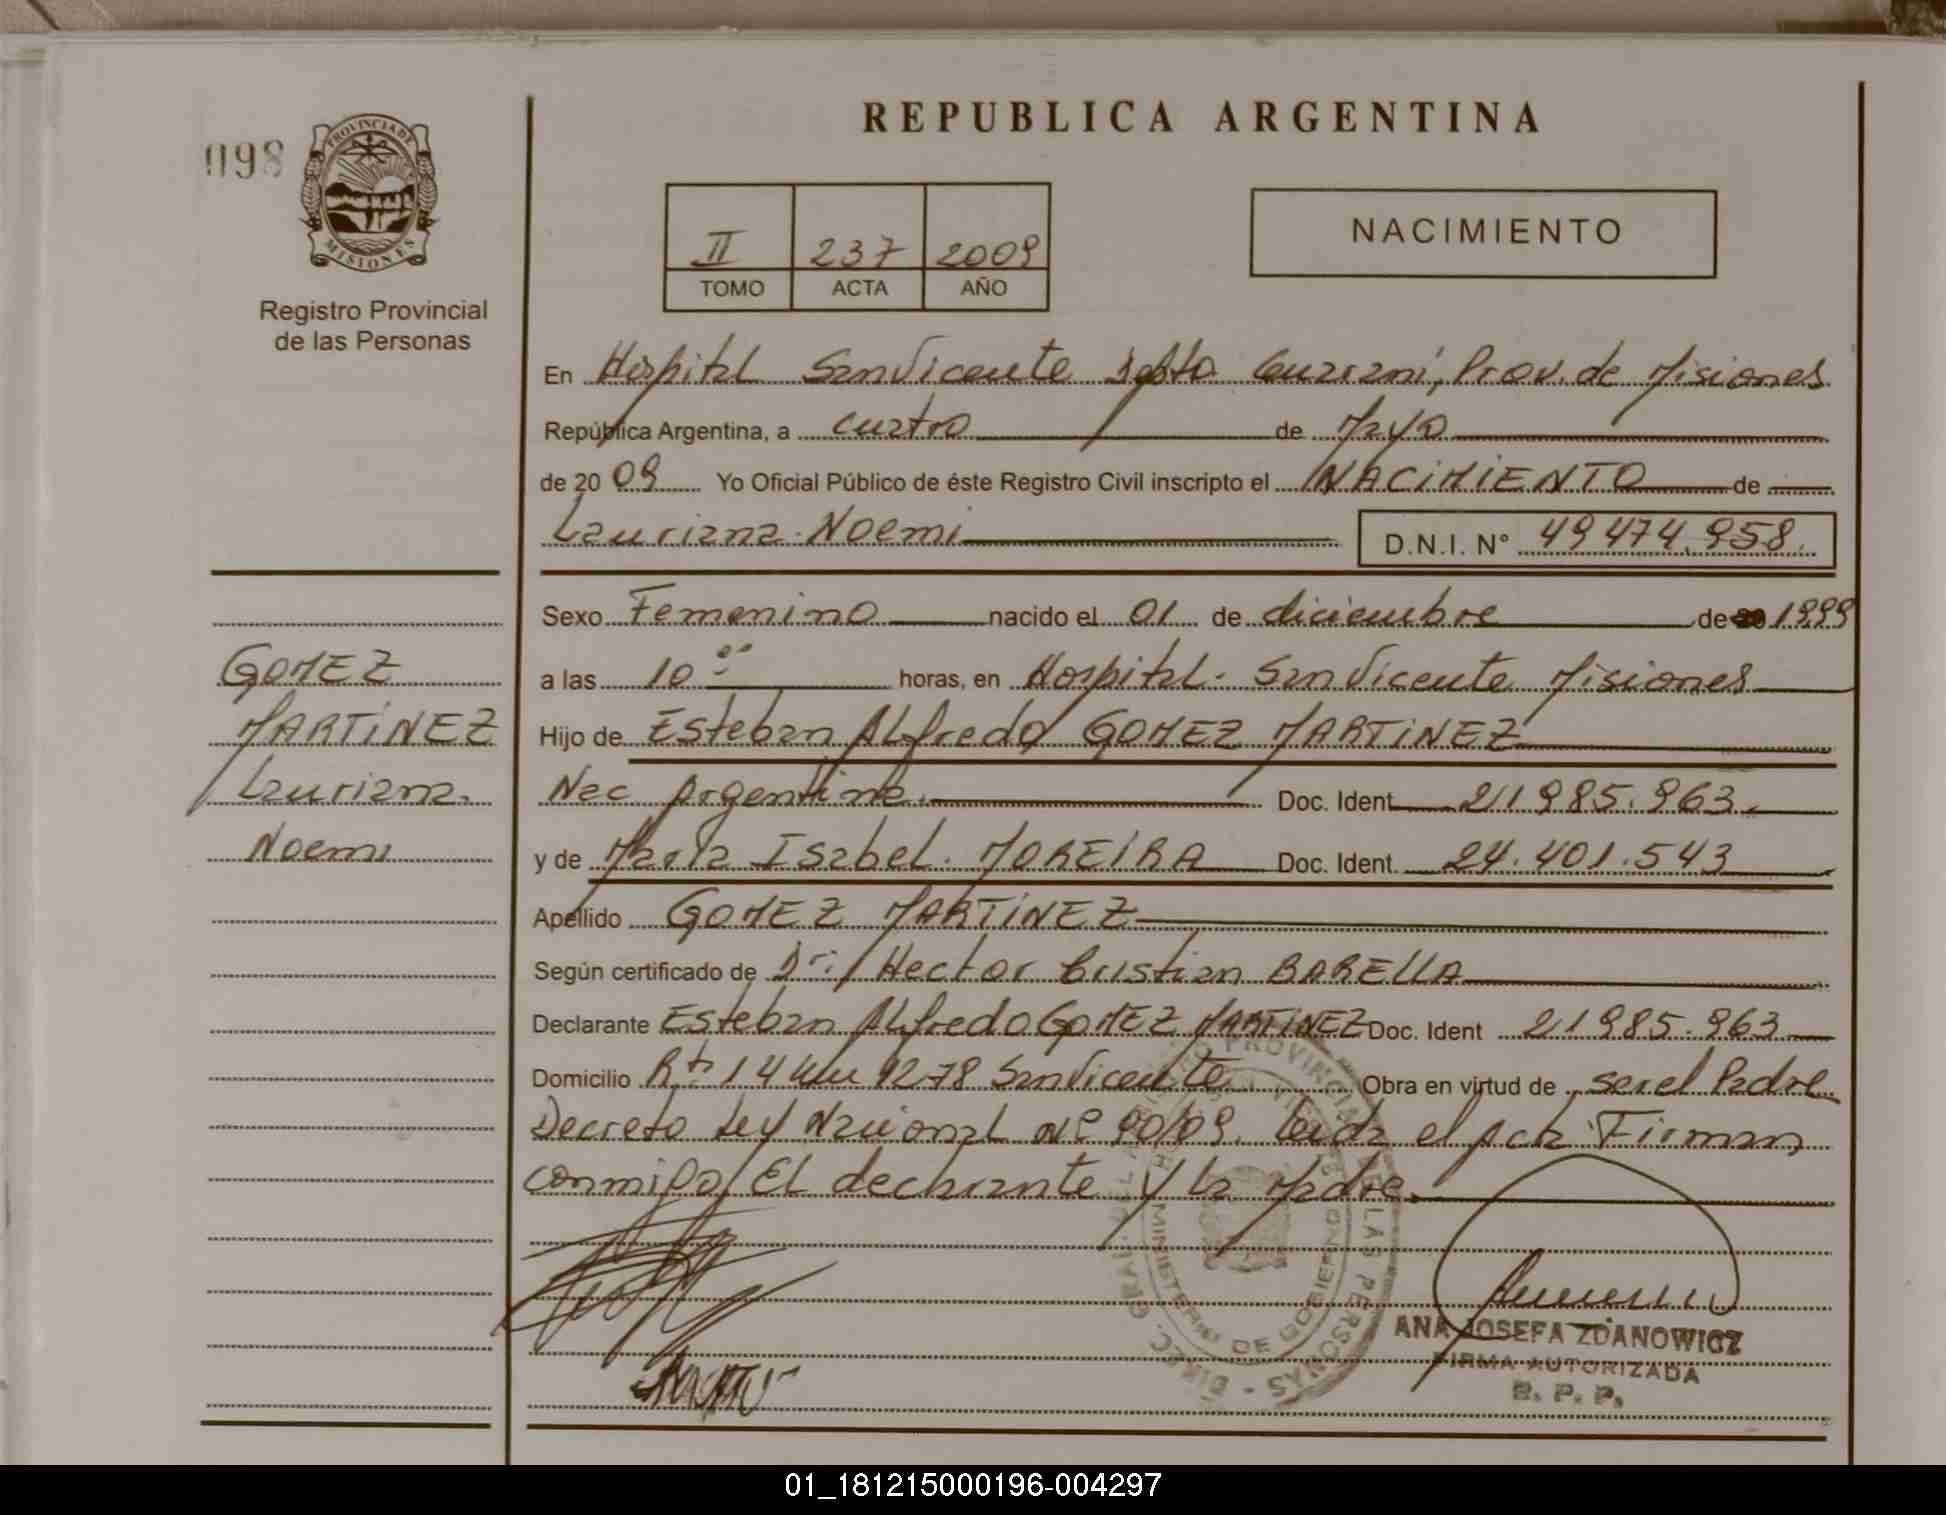 REPUBLICA ARGENTINA
098
PROVINCIA DE
MISIONES
Registro Provincial
de las Personas
II 237 2009
TOMO ACTA AÑO
NACIMIENTO
En Hospital San Vicente Dpto Guaraní, Prov. de Misiones
República Argentina, a cuatro de Mayo
de 2009 Yo Oficial Público de éste Registro Civil inscripto el NACIMIENTO de
Lauriana Noemi D.N.I. N° 49 474.958.
Sexo Femenino nacido el 01 de diciembre de 1999
a las 10 00 horas, en Hospital San Vicente Misiones
Hijo de Esteban Alfredo GOMEZ MARTINEZ
Nac Argentina. Doc. Ident 21 985.963.
y de Maria Isabel MOREIRA Doc. Ident. 24.401.543
Apellido GOMEZ MARTINEZ
Según certificado de Dr. Hector Cristian BARELLA
Declarante Esteban Alfredo GOMEZ MARTINEZ Doc. Ident 21 985.963
Domicilio Rta 14 km 1278 San Vicente Obra en virtud de ser el Padre
Decreto Ley Nacional Nº 90/09. Leida el acta Firman
conmigo El declarante y la Madre.
GOMEZ
MARTINEZ
Lauriana
Noemi
DIREC. GRAL. DEL REGISTRO PROVINCIAL DE LAS PERSONAS
MINISTERIO DE GOBIERNO
ANA JOSEFA ZDANOWICZ
FIRMA AUTORIZADA
R. P. P.
01_181215000196-004297